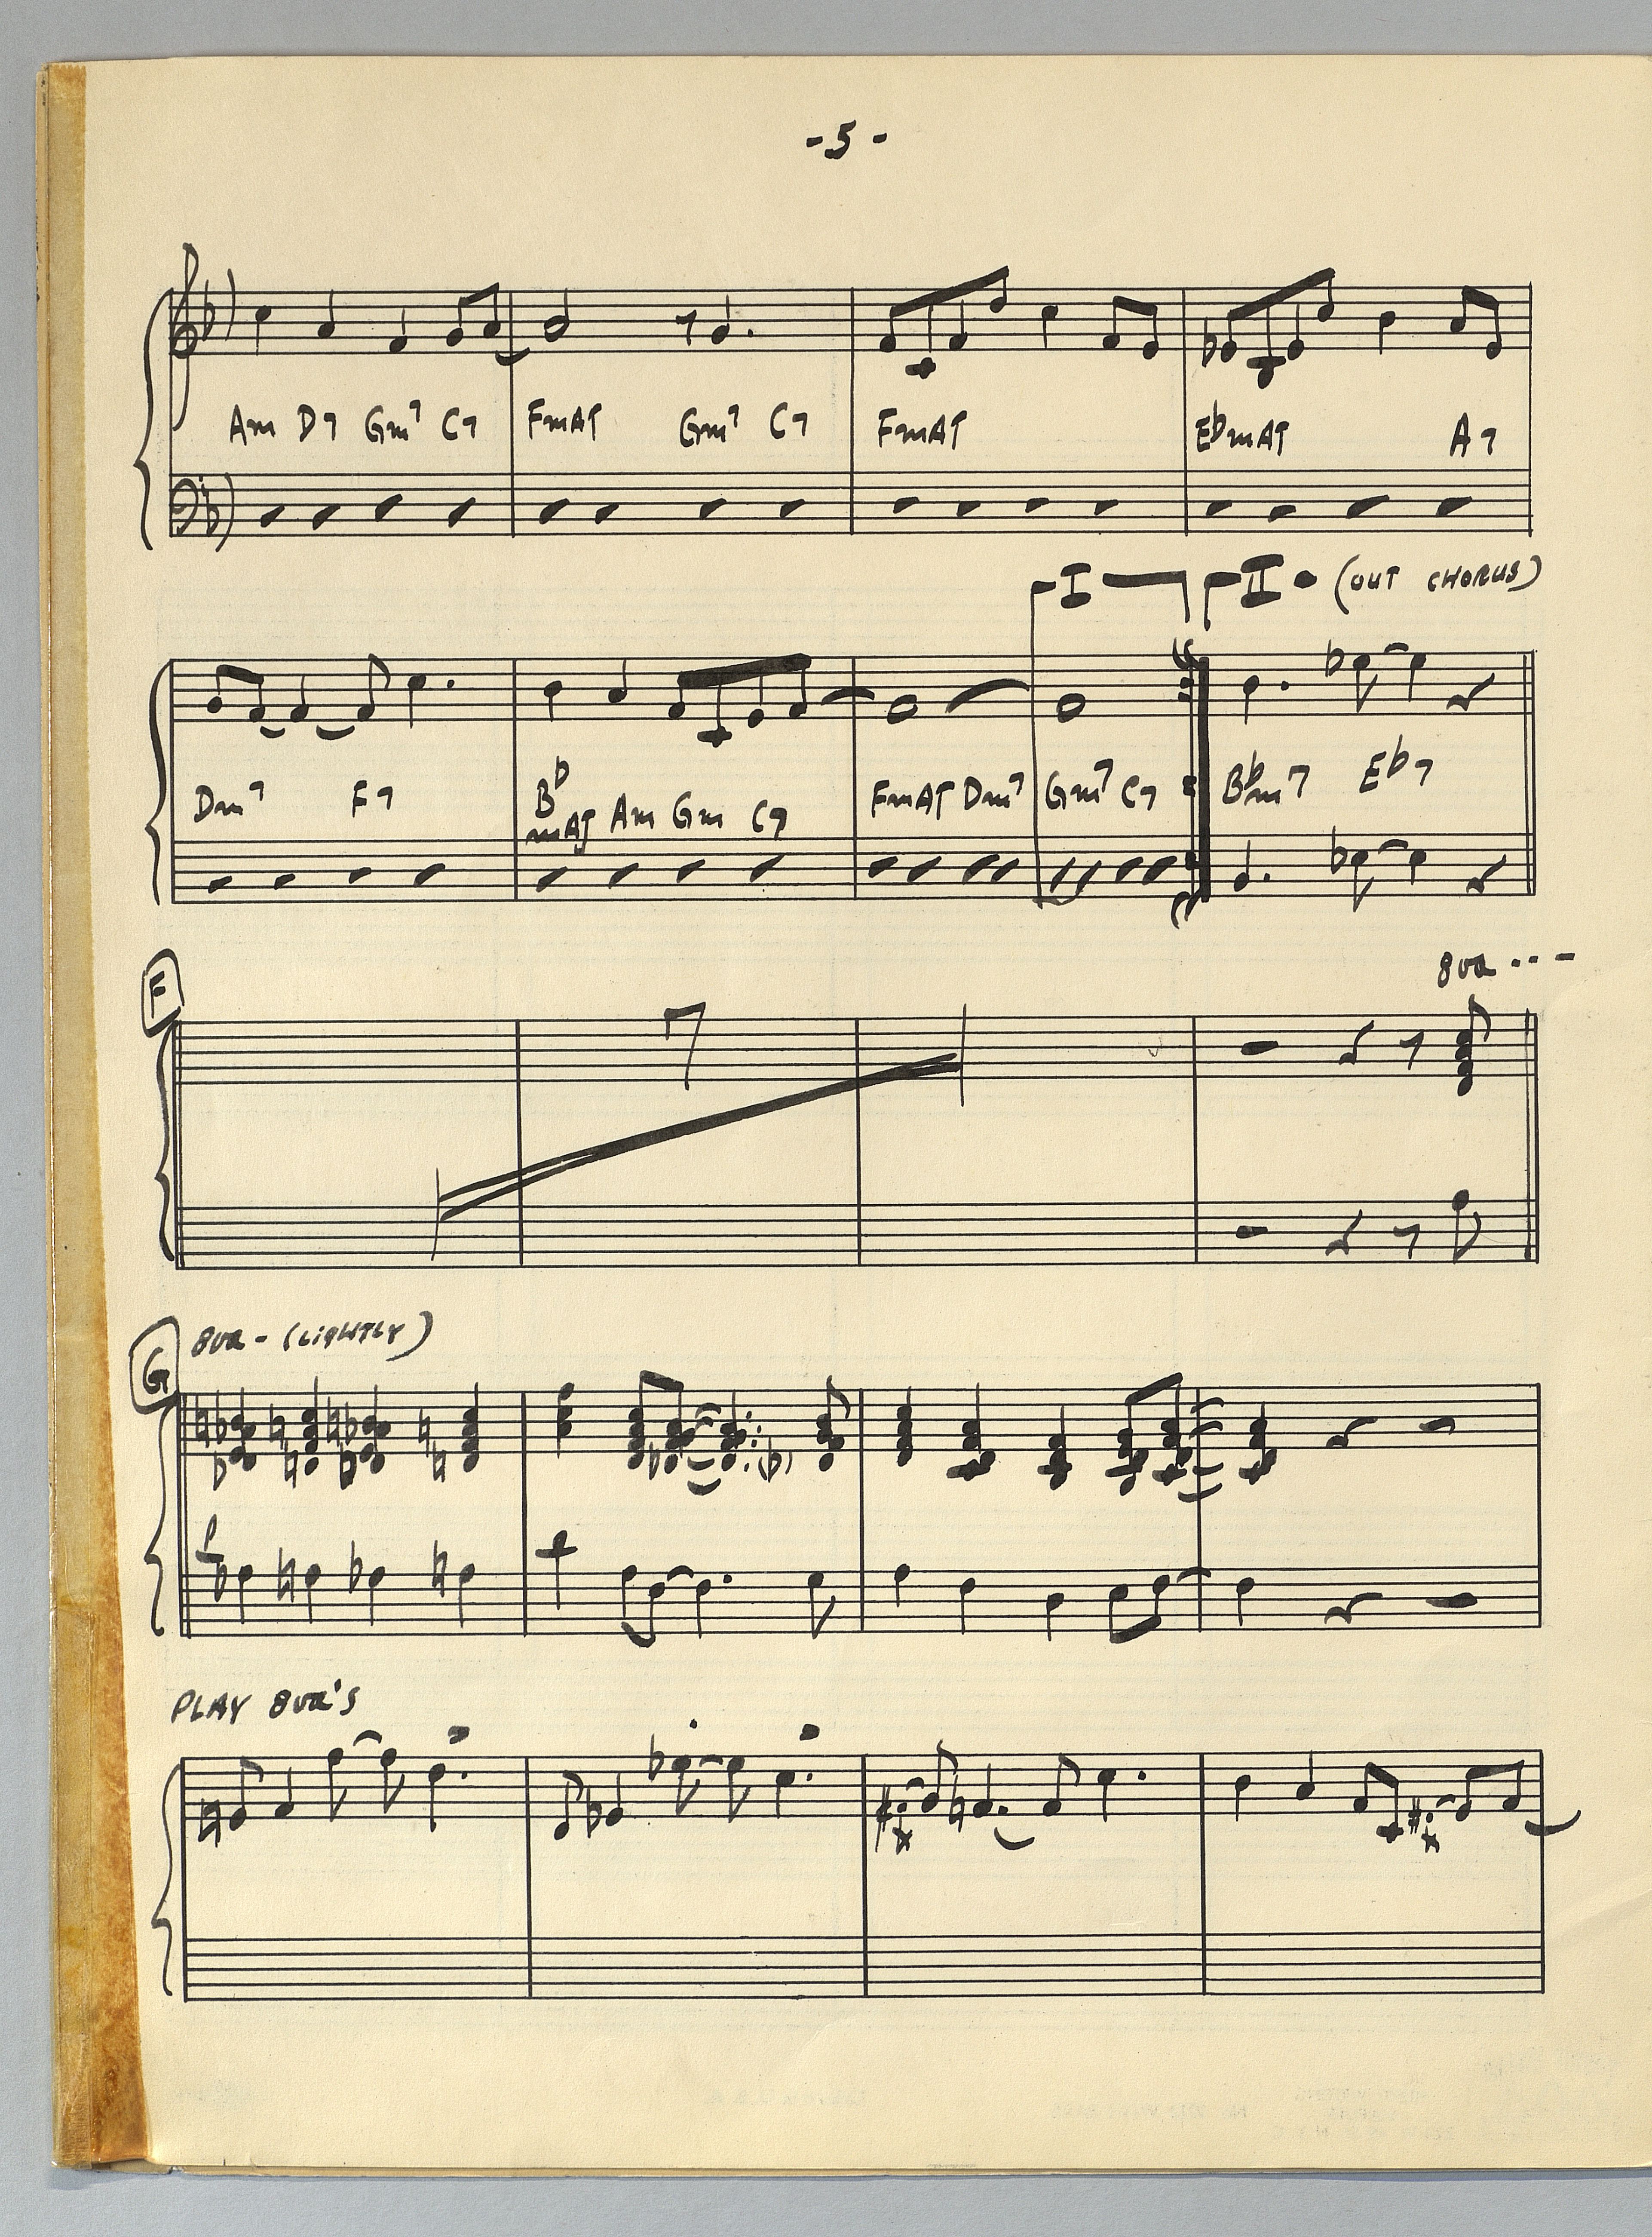 -5-
Am D7 Gm7 C7 FmAJ Gm7 C7 FmAJ EbmAJ A7
I II (OUT CHORUS)
Dm7 F7 Bb mAJ Am Gm C7 FmAJ Dm7 Gm7 C7 Bbm7 Eb7
F 8va ---
7
G 8va - (LIGHTLY)
PLAY 8va's